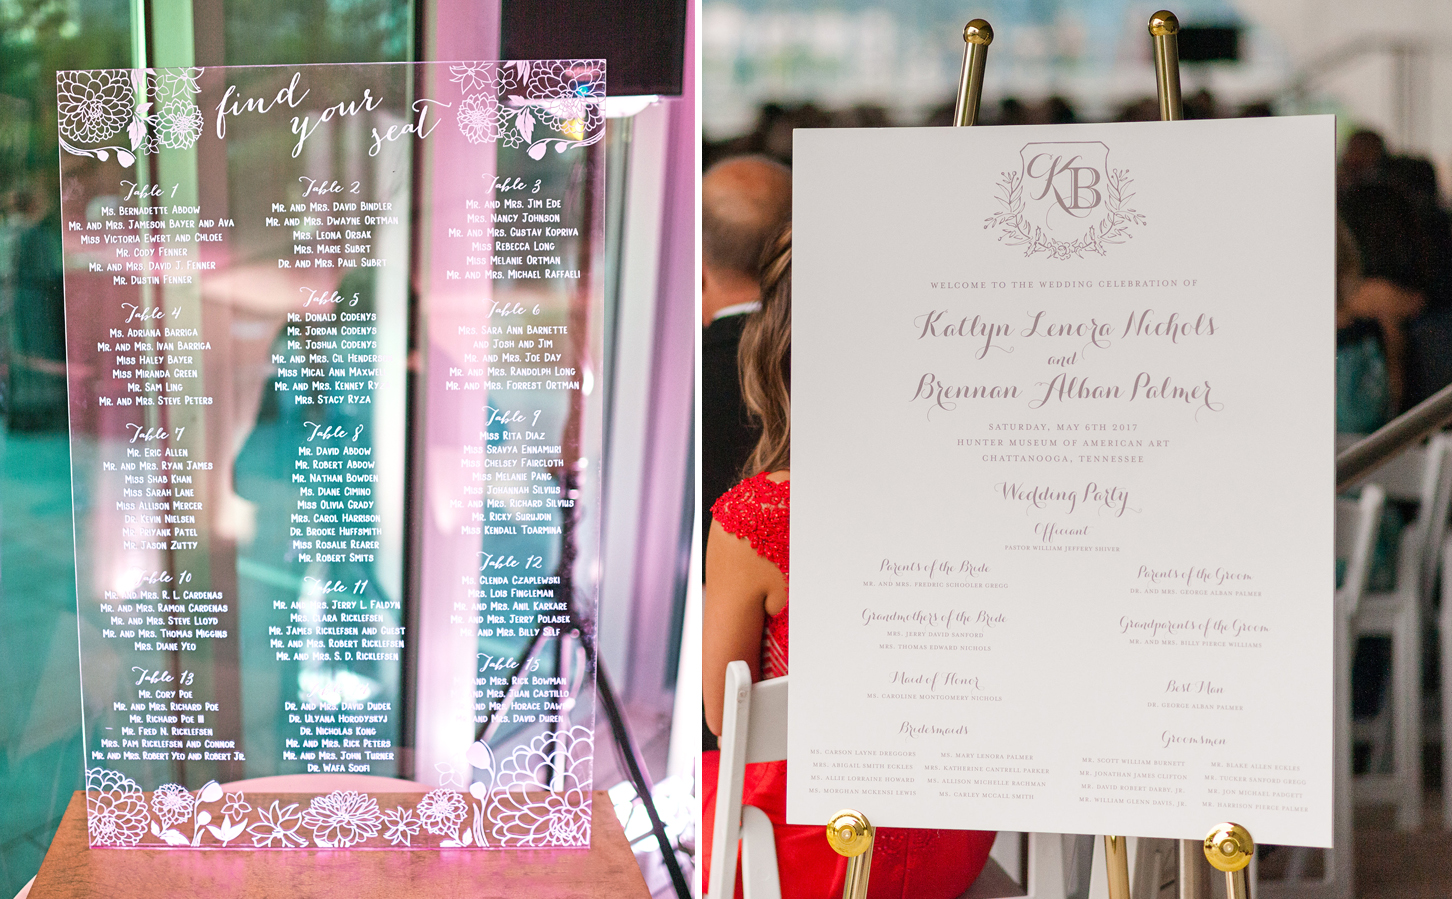 find
your
seat
Table 1
Ms. Bernadette Abdow
Mr. and Mrs. Jameson Bayer and Ava
Miss Victoria Ewert and Chloee
Mr. Cody Fenner
Mr. and Mrs. David J. Fenner
Mr. Dustin Fenner
Table 2
Mr. and Mrs. David Bindler
Mr. and Mrs. Dwayne Ortman
Mrs. Leona Orsak
Mrs. Marie Subrt
Dr. and Mrs. Paul Subrt
Table 3
Mr. and Mrs. Jim Ede
Mrs. Nancy Johnson
Mr. and Mrs. Gustav Kopriva
Miss Rebecca Long
Miss Melanie Ortman
Mr. and Mrs. Michael Raffaeli
Table 4
Ms. Adriana Barriga
Mr. and Mrs. Ivan Barriga
Miss Haley Bayer
Miss Miranda Green
Mr. Sam Ling
Mr. and Mrs. Steve Peters
Table 5
Mr. Donald Codenys
Mr. Jordan Codenys
Mr. Joshua Codenys
Mr. and Mrs. Gil
Miss Mical Ann
Mr. and Mrs. Kenney
Mrs. Stacy Ryza
Table 6
Mrs. Sara Ann Barnette
and Josh and Jim
Mr. and Mrs. Joe Day
Mr. and Mrs. Randolph Long
Mr. and Mrs. Forrest Ortman
Table 7
Mr. Eric Allen
Mr. and Mrs. Ryan James
Miss Shab Khan
Miss Sarah Lane
Miss Allison Mercer
Dr. Kevin Nielsen
Mr. Priyank Patel
Mr. Jason Zutty
Table 8
Mr. David Abdow
Mr. Robert Abdow
Mr. Nathan Bowden
Ms. Diane Cimino
Miss Olivia Grady
Mrs. Carol Harrison
Dr. Brooke Huffsmith
Miss Rosalie Rearer
Mr. Robert Smits
Table 9
Miss Rita Diaz
Miss Sravya Ennamuri
Miss Chelsey Faircloth
Miss Melanie Pang
Miss Johannah Silvius
Mr. and Mrs. Richard Silvius
Mr. Ricky Surujdin
Miss Kendall Toarmina
Table 10
Mr. and Mrs. R. L. Cardenas
Mr. and Mrs. Ramon Cardenas
Mr. and Mrs. Steve Lloyd
Mr. and Mrs. Thomas Miggins
Mrs. Diane Yeo
Table 11
Mr. and Mrs. Jerry L. Faldyn
Mrs. Clara Ricklefsen
Mr. James Ricklefsen and Guest
Mr. and Mrs. Robert Ricklefsen
Mr. and Mrs. S. D. Ricklefsen
Table 12
Ms. Glenda Czaplewski
Mrs. Lois Fingleman
Mr. and Mrs. Anil Karkare
Mr. and Mrs. Jerry Polasek
Mr. and Mrs. Billy Self
Table 13
Mr. Cory Poe
Mr. and Mrs. Richard Poe
Mr. Richard Poe III
Mr. Fred N. Ricklefsen
Mrs. Pam Ricklefsen and Connor
Mr. and Mrs. Robert Yeo and Robert Jr.
Dr. and Mrs. David Dudek
Dr. Ulyana Horodyskyj
Dr. Nicholas Kong
Mr. and Mrs. Rick Peters
Mr. and Mrs. John Turner
Dr. Wafa Soofi
Table 15
and Mrs. Rick Bowman
and Mrs. Juan Castillo
and Mrs. Horace
and Mrs. David Duren
KB
WELCOME TO THE WEDDING CELEBRATION OF
Katlyn Lenora Nichols
and
Brennan Alban Palmer
SATURDAY, MAY 6TH 2017
HUNTER MUSEUM OF AMERICAN ART
CHATTANOOGA, TENNESSEE
Wedding Party
Officiant
PASTOR WILLIAM JEFFERY SHIVER
Parents of the Bride
MR. AND MRS. FREDRIC SCHOOLER GREGG
Parents of the Groom
DR. AND MRS. GEORGE ALBAN PALMER
Grandmothers of the Bride
MRS. JERRY DAVID SANFORD
MRS. THOMAS EDWARD NICHOLS
Grandparents of the Groom
MR. AND MRS. BILLY PIERCE WILLIAMS
Maid of Honor
MS. CAROLINE MONTGOMERY NICHOLS
Best Man
DR. GEORGE ALBAN PALMER
Bridesmaids
MS. CARSON LAYNE GREGGORY
MRS. ABIGAIL SMITH ECKLES
MS. ALLIE LORRAINE HOWARD
MS. MORGHAN MCKENSI LEWIS
MS. MARY LENORA PALMER
MRS. KATHERINE CANTRELL PARKER
MS. ALLISON MICHELLE RACHMAN
MS. CARLEY MCCALL SMITH
Groomsmen
MR. SCOTT WILLIAM BURNETT
MR. JONATHAN JAMES CLIFTON
MR. DAVID ROBERT DARBY, JR.
MR. WILLIAM GLENN DAVIS, JR.
MR. BLAKE ALLEN ECKLES
MR. TUCKER SANFORD GREGG
MR. JON MICHAEL PADGETT
MR. HARRISON PIERCE PALMER